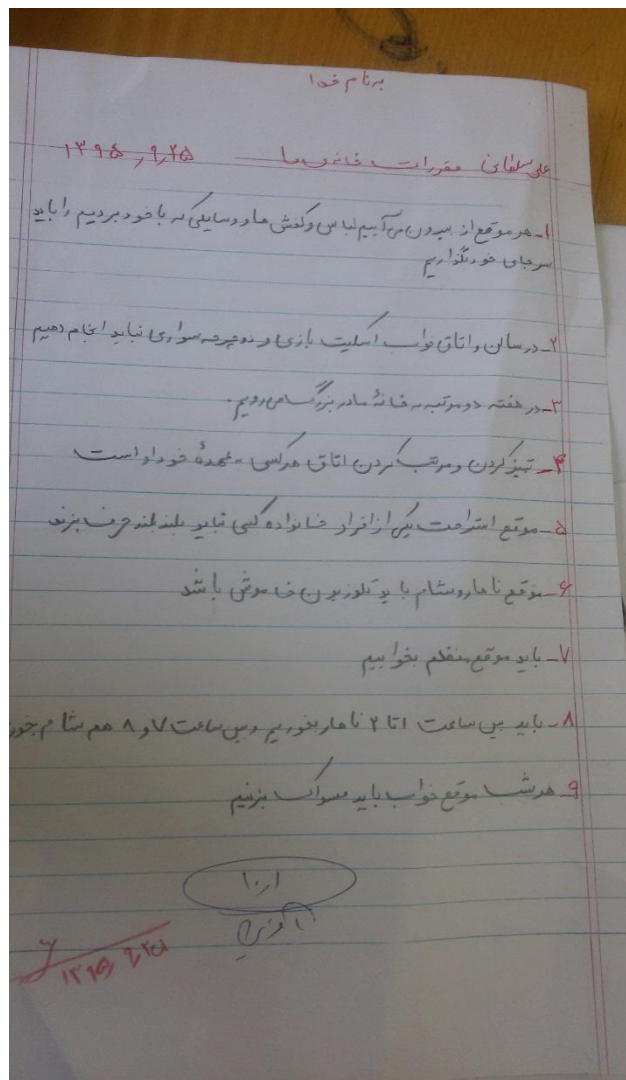 به نام خدا
علی سلطانی مقررات خانه‌ی ما ۱۳۹۵٫۹٫۲۵
۱- هر موقع از بیرون می‌آییم لباس و کفش ها و وسایلی که با خود بردیم را باید
سر جای خود بگذاریم
۲- در سالن و اتاق خواب اسکیت بازی و دوچرخه سواری نباید انجام دهیم
۳- در هفته دو مرتبه به خانهٔ مادربزرگ می‌رویم.
۴- تمیز کردن و مرتب کردن اتاق هرکسی به عهدهٔ خود او است
۵- موقع استراحت یکی از افراد خانواده کسی نباید بلند بلند حرف بزند
۶- موقع ناهار و شام باید تلوزیون خاموش باشد
۷- باید موقع منظم بخوابیم
۸- باید بین ساعت ۱ تا ۲ ناهار بخوریم و بین ساعت ۷ و ۸ هم شام بخور
۹- هر شب موقع خواب باید مسواک بزنیم
۱٫۱۰
۱۳۹۵٫۹٫۲۵